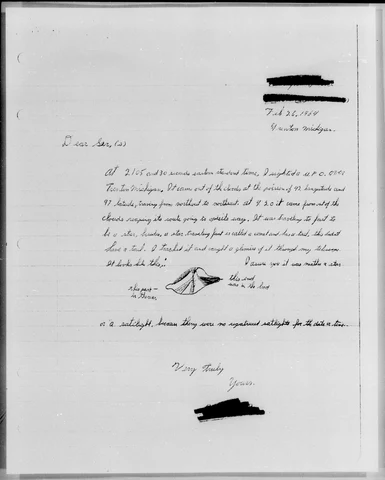 Feb 26, 1964
Trenton Michigan.
Dear Sir, (s)
At 2:05 and 30 seconds eastern standard time, I sighted a U.F.O. over
Trenton Michigan. It came out of the clouds at the position of 42 longitude and
47 latitude, traveling from northeast to northwest at 8:20 it came from out of the
clouds it was going to opposite way. It was traveling to fast to
be a star, a star traveling fast is called a comet and has a tail, this didn't
have a tail. I tracked it and caught a glimpse of it through my telescope.
It looks like this,:
I assure you it was neither a star
this part
this end
was in the back
or a satilight, because they were no satilights for the date or time.
Very truly
Yours.